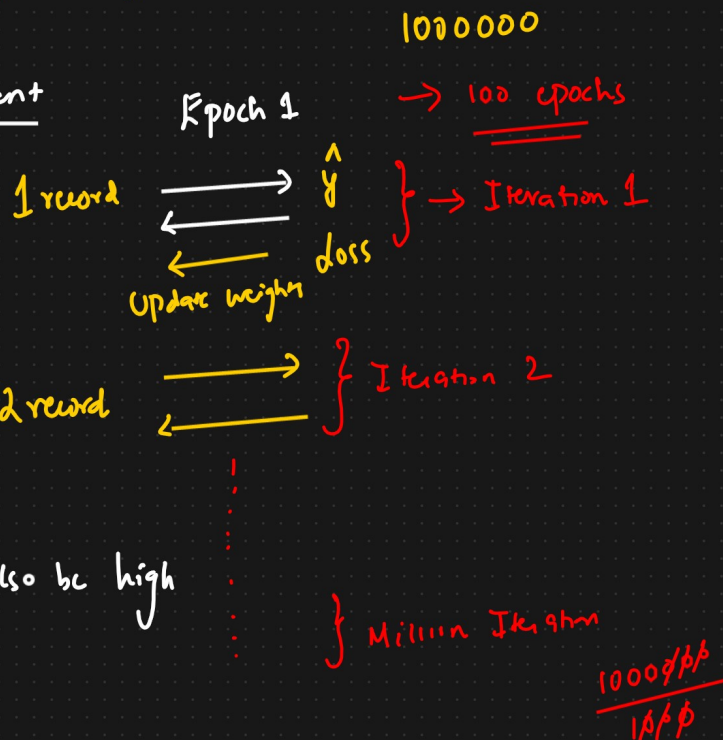 1000000
ent
Epoch 1
→ 100 epochs
1 record
ŷ
→ Iteration 1
Loss
Update weights
2 record
Iteration 2
lso be high
Million Iteration
1000000
1000